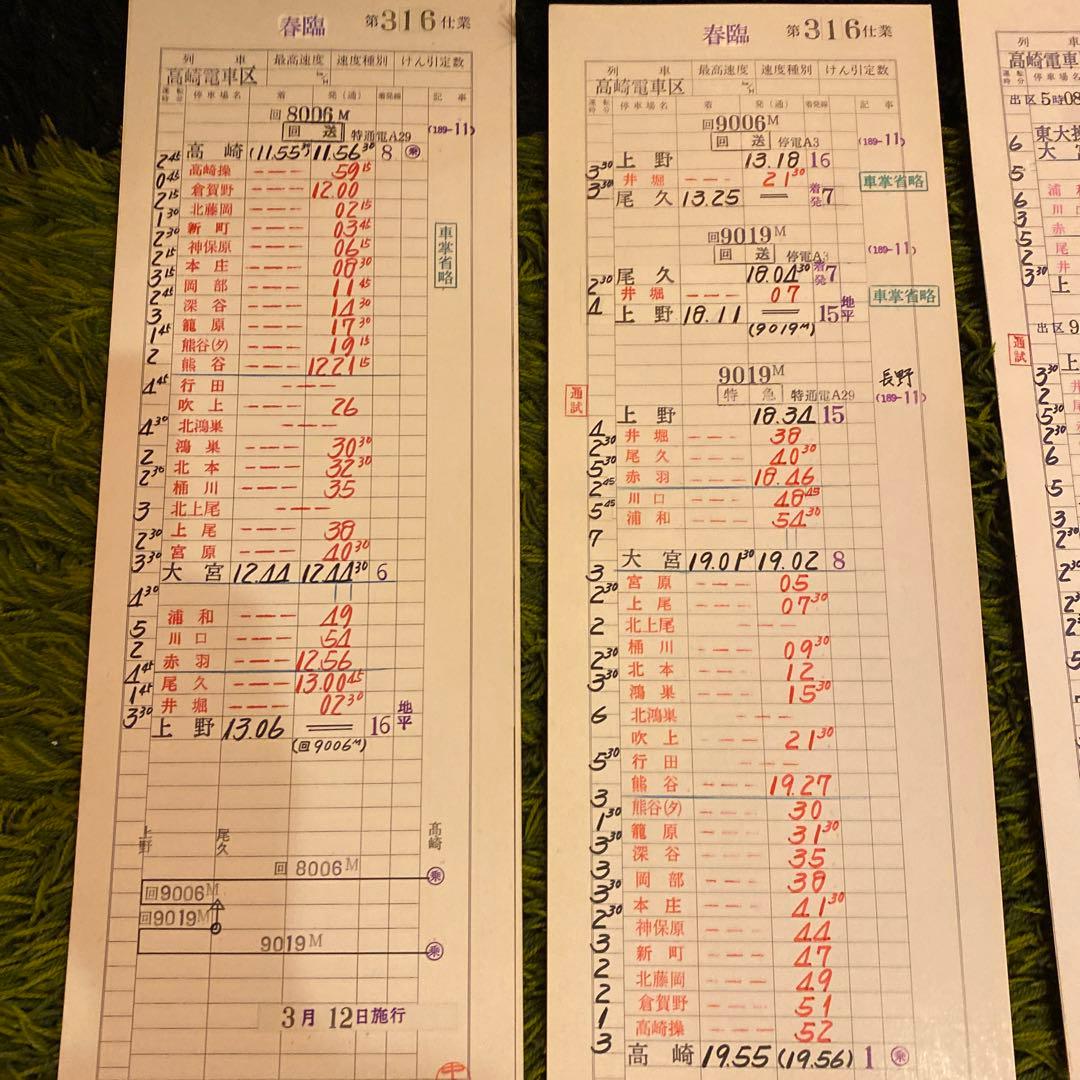 春臨 第316仕業
列 車 最高速度 速度種別 けん引定数
高崎電車区
運転時分 停車場名 着 発(通) 着発線 記事
回8006M
回送 特通電A29 (189-11)
高崎 (11.55 11.56³⁰ 8 乗
2⁴⁵
高崎操 --- 59¹⁵
0⁴⁵
倉賀野 --- 12.00
2¹⁵
北藤岡 --- 02¹⁵
1³⁰
新町 --- 03⁴⁵
2³⁰
神保原 --- 06¹⁵
2¹⁵
本庄 --- 08³⁰
3¹⁵
岡部 --- 11⁴⁵
2⁴⁵
深谷 --- 14³⁰
3
籠原 --- 17³⁰
1⁴⁵
熊谷(タ) --- 19¹⁵
2
熊谷 --- 12.21¹⁵
行田 ---
4⁴⁵
吹上 --- 26
北鴻巣 ---
4³⁰
鴻巣 --- 30³⁰
2
北本 --- 32³⁰
2³⁰
桶川 --- 35
北上尾 ---
3
上尾 --- 38
2³⁰
宮原 --- 40³⁰
3³⁰
大宮 12.44 12.44³⁰ 6
4³⁰
浦和 --- 49
5
川口 --- 54
2
赤羽 --- 12.56
4⁴⁵
尾久 --- 13.00⁴⁵
1⁴⁵
井堀 --- 02³⁰
3³⁰
上野 13.06 16 地平
(回9006M)
車掌省略
上野 尾久 高崎
回8006M 乗
回9006M
回9019M
9019M 乗
3月12日施行
春臨 第316仕業
列 車 最高速度 速度種別 けん引定数
高崎電車区
運転時分 停車場名 着 発(通) 着発線 記事
回9006M
回送 停電A3 (189-11)
上野 13.18 16
3³⁰
井堀 --- 21³⁰ 車掌省略
3³⁰
尾久 13.25 着発7
回9019M
回送 停電A3 (189-11)
尾久 18.04³⁰ 着発7
2³⁰
井堀 --- 07 車掌省略
4
上野 18.11 15 地平
(9019M)
9019M 長野
通試 特急 特通電A29 (189-11)
上野 18.34 15
4
井堀 --- 38
2³⁰
尾久 --- 40³⁰
5³⁰
赤羽 --- 18.46
2⁴⁵
川口 --- 48⁴⁵
5⁴⁵
浦和 --- 54³⁰
7
大宮 19.01³⁰ 19.02 8
3
宮原 --- 05
2³⁰
上尾 --- 07³⁰
北上尾 ---
2
桶川 --- 09³⁰
2³⁰
北本 --- 12
3³⁰
鴻巣 --- 15³⁰
北鴻巣 ---
6
吹上 --- 21³⁰
行田 ---
5³⁰
熊谷 --- 19.27
3
熊谷(タ) --- 30
1³⁰
籠原 --- 31³⁰
3³⁰
深谷 --- 35
3
岡部 --- 38
3³⁰
本庄 --- 41³⁰
2³⁰
神保原 --- 44
3
新町 --- 47
2
北藤岡 --- 49
2
倉賀野 --- 51
1
高崎操 --- 52
3
高崎 19.55 (19.56) 1 乗
高崎電車
出区5時08
東大操
大宮
出区9
通試